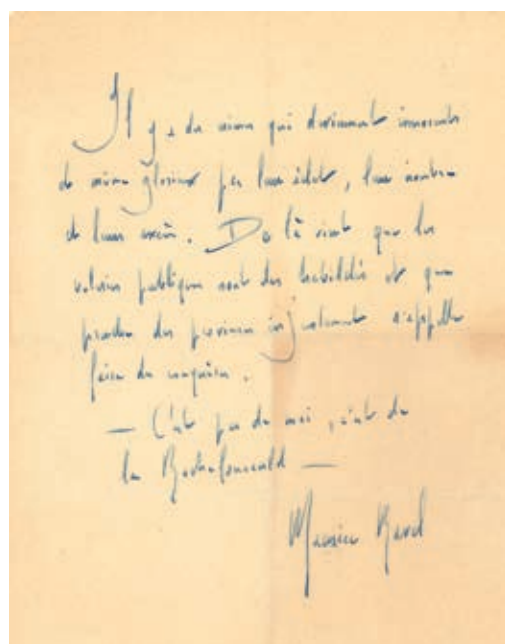 Il y a des crimes qui deviennent innocents
et même glorieux par leur éclat, leur nombre
et leurs excès. De là vient que les
voleries publiques sont des habiletés et que
prendre des provinces injustement s'appelle
faire des conquêtes.
— C'est pas de moi, c'est de
la Rochefoucauld —
Maurice Ravel